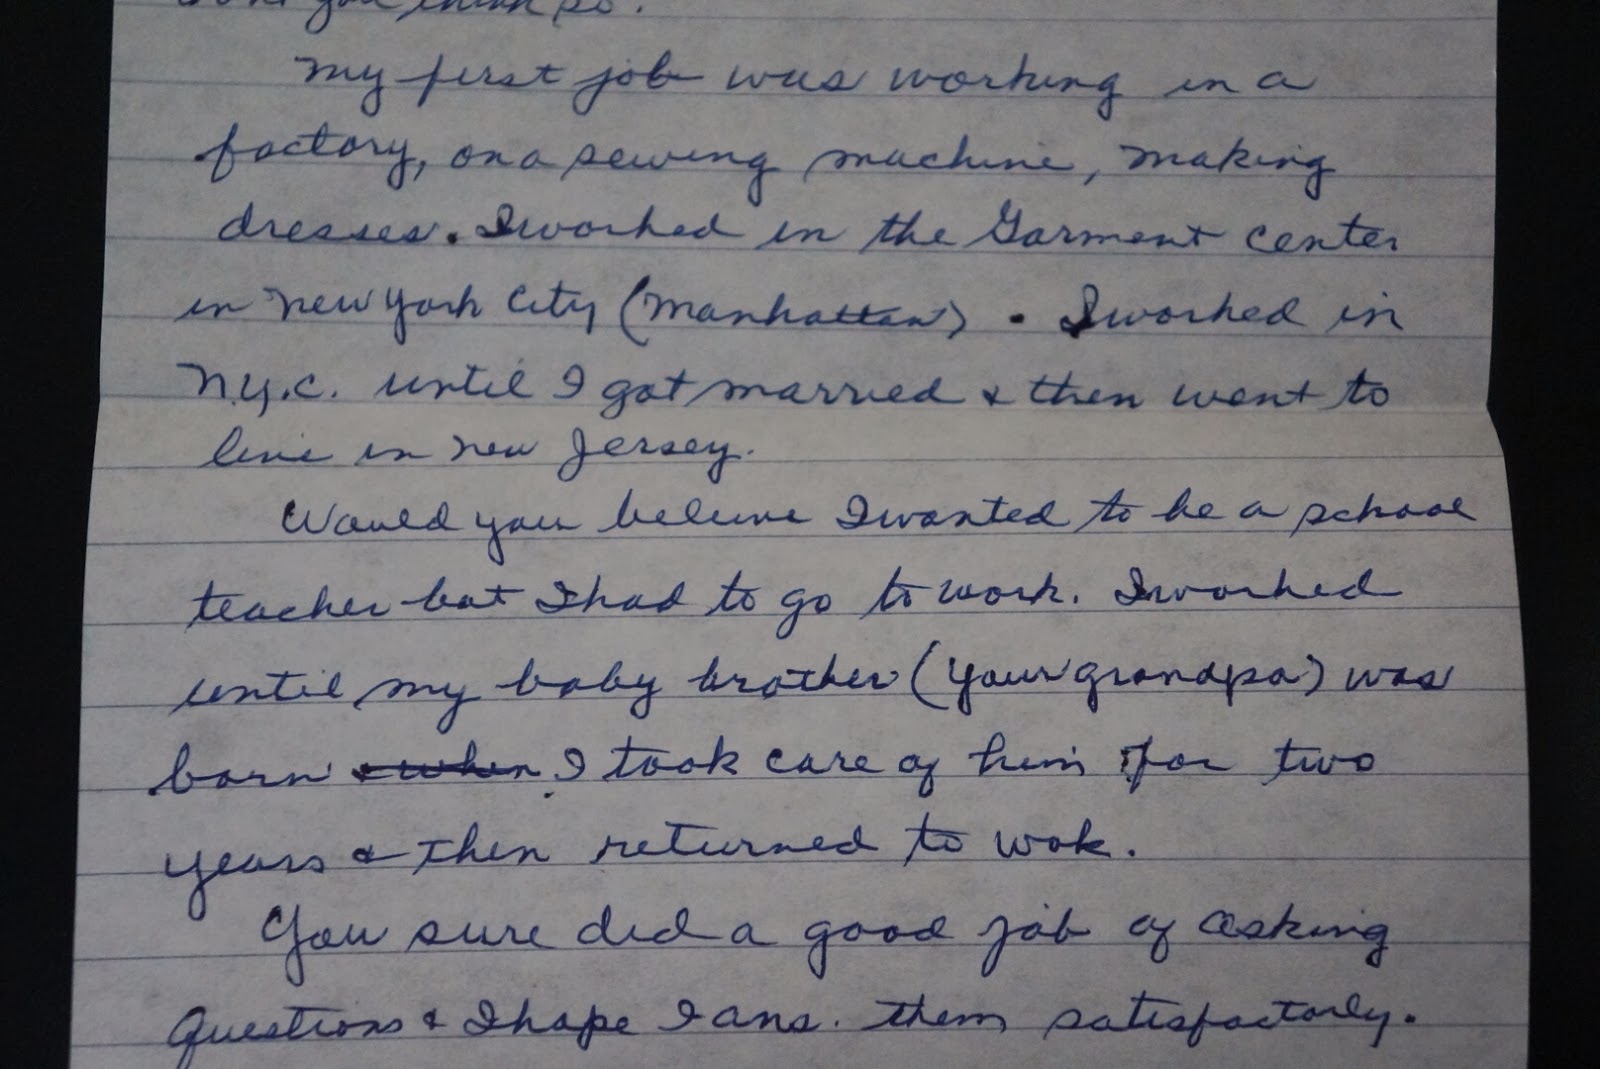 you think so.
My first job was working in a
factory, on a sewing machine, making
dresses. I worked in the Garment center
in New York City (Manhattan). I worked in
N.Y.C. until I got married & then went to
live in New Jersey.
Would you believe I wanted to be a school
teacher but I had to go to work. I worked
until my baby brother (your grandpa) was
born & when. I took care of him for two
years & then returned to wok.
You sure did a good job of asking
questions & I hope I ans. them satisfactorly.